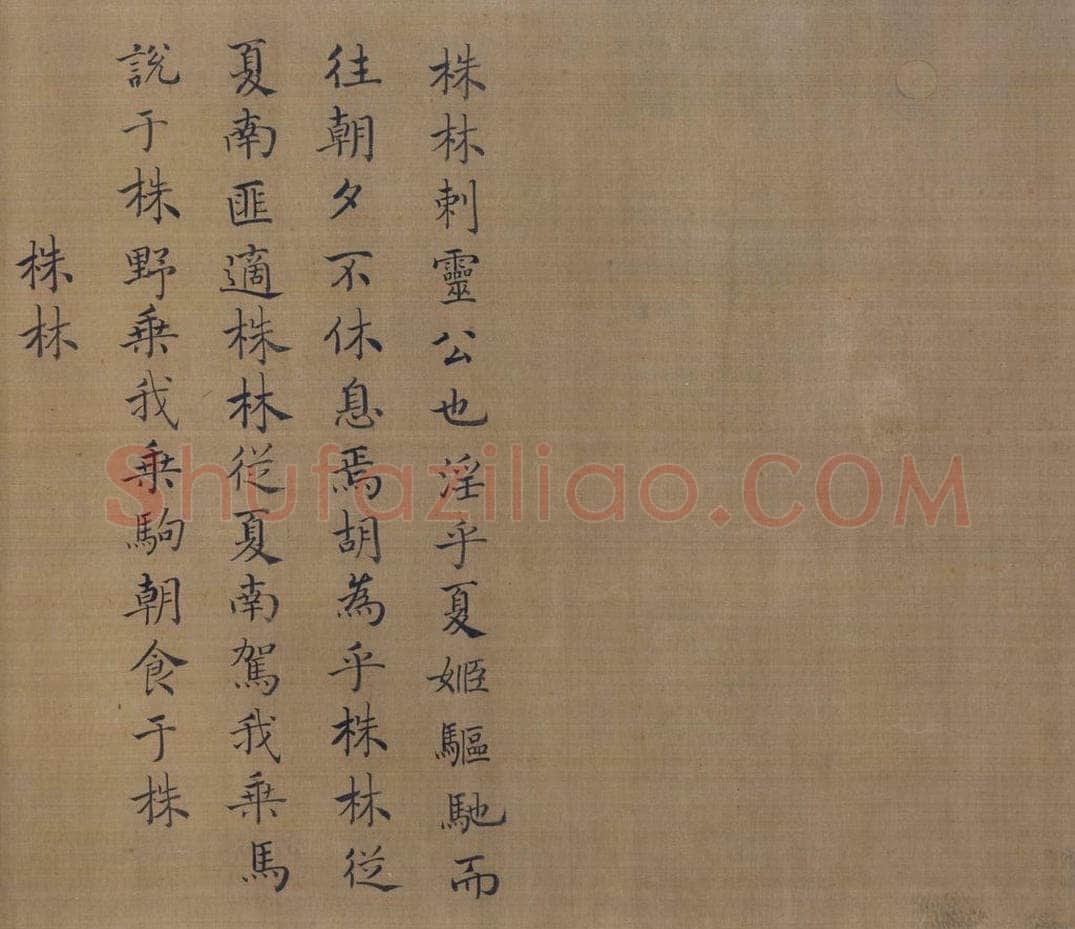 株林刺靈公也淫乎夏姬驅馳而
往朝夕不休息焉胡為乎株林從
夏南匪適株林從夏南駕我乗馬
說于株野乗我乗駒朝食于株
株林
Shufaziliao.COM